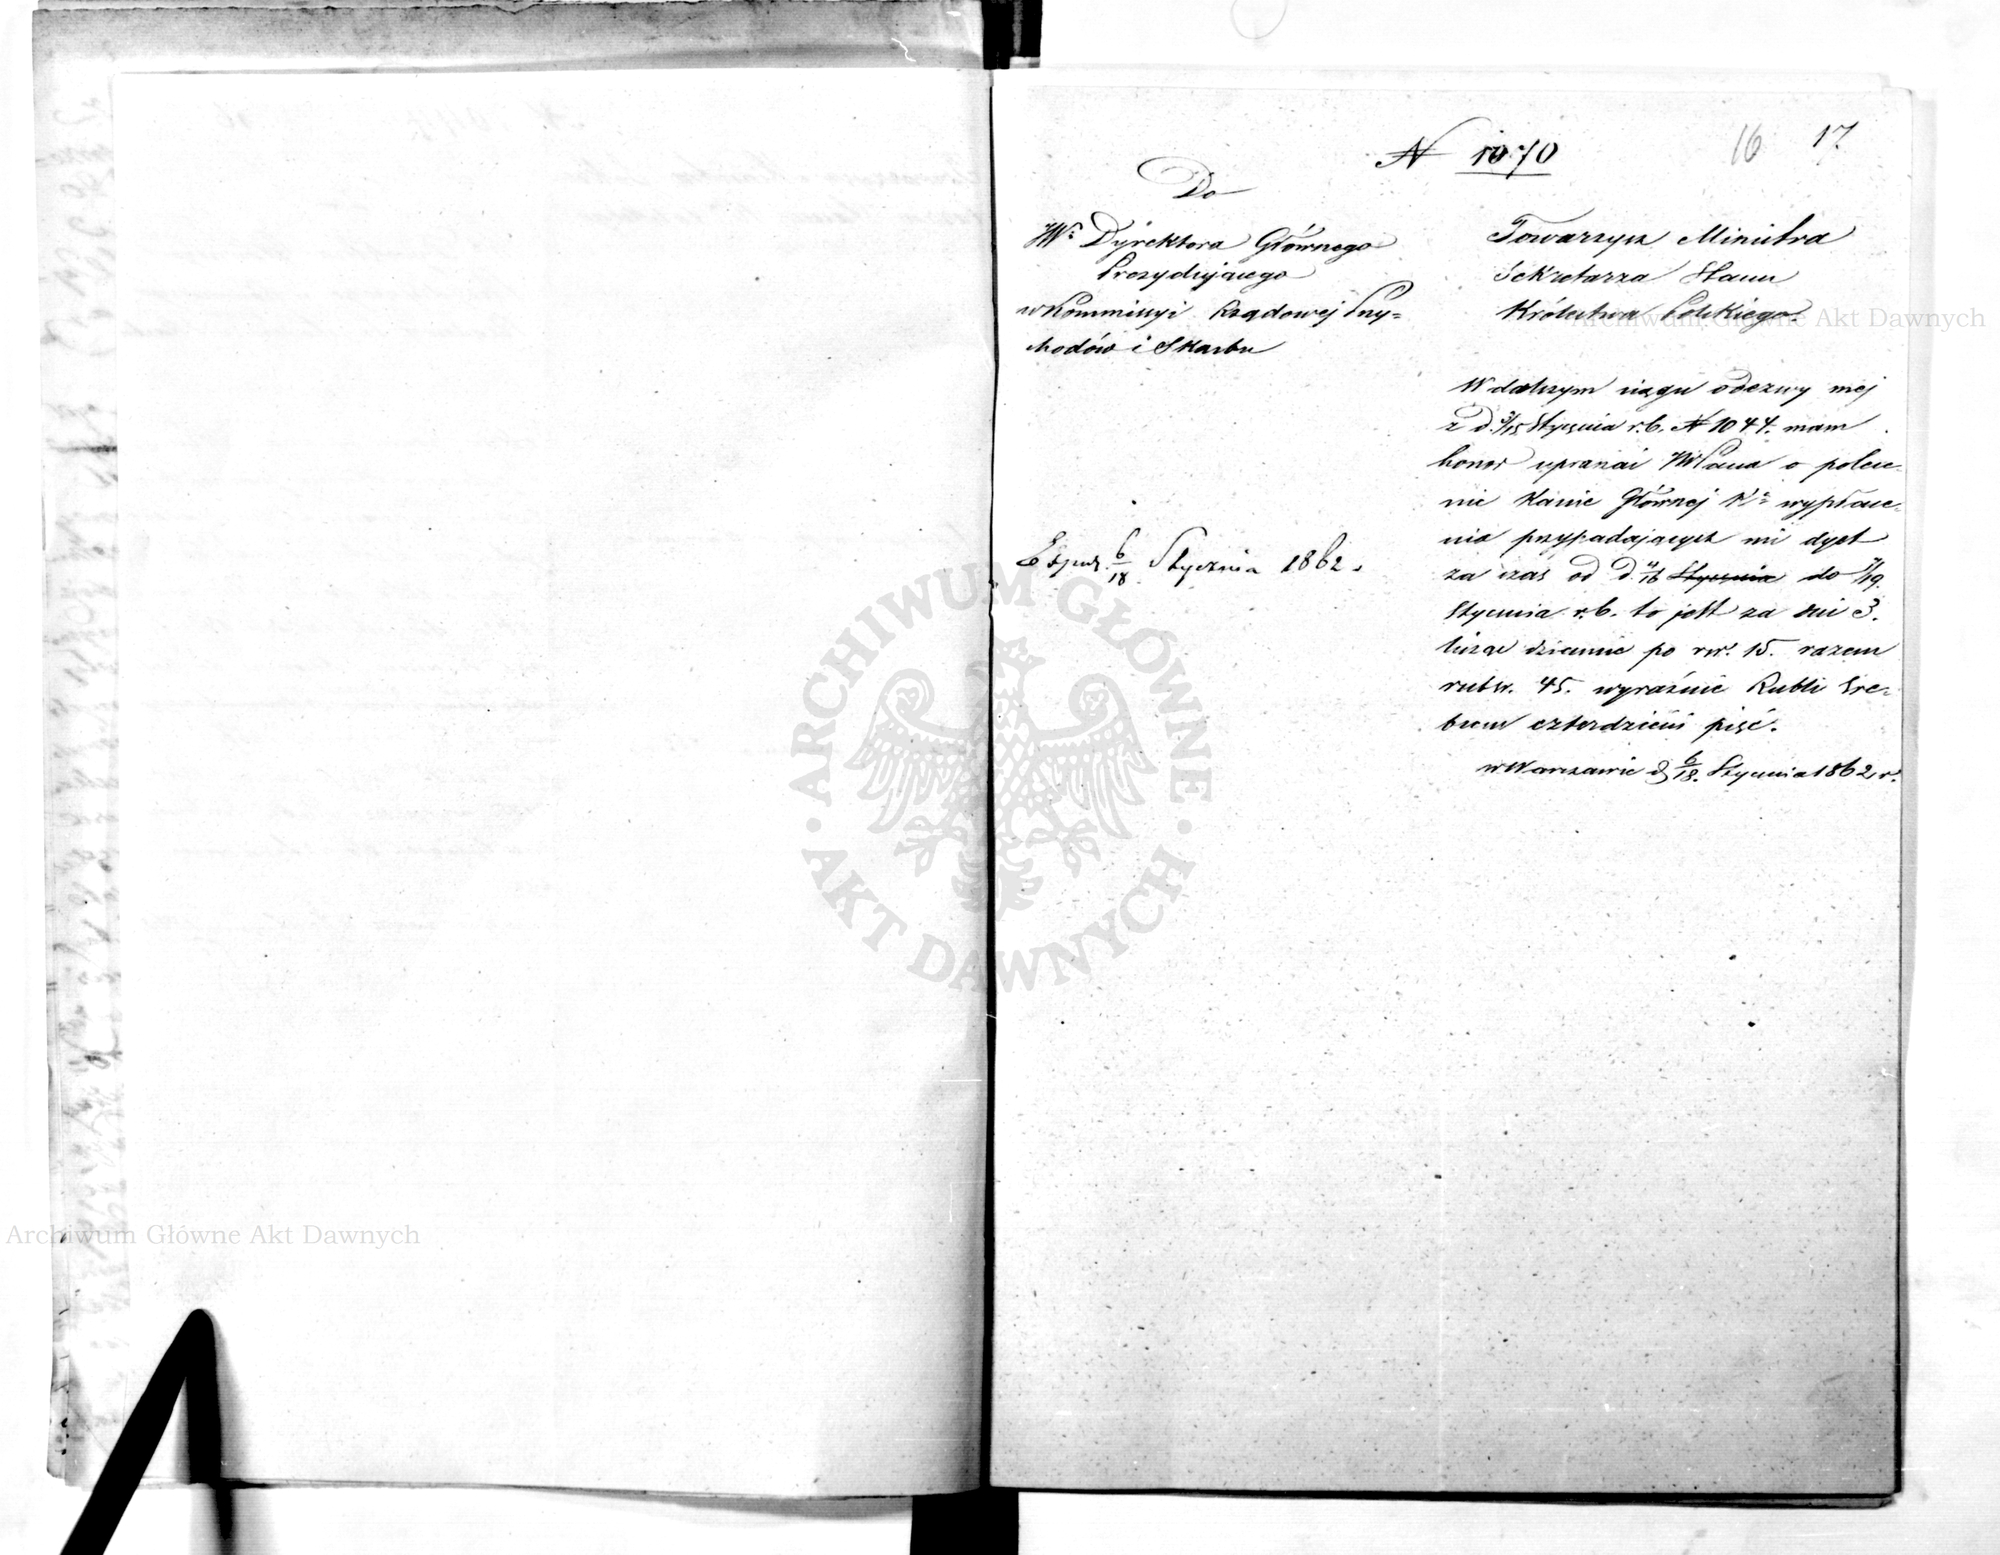 N 1070
16 17.
Do
JW: Dyrektora Głównego
Prezydującego
w Kommissyi Rządowej Przy=
chodów i Skarbu
Towarzysz Ministra
Sekretarza Stanu
Królestwa Polskiego.
W dalszym ciągu odezwy mej
z d. 3/15 Stycznia r.b. N 1044. mam
honor upraszać JWPana o polece-
nie Kassie Głównej K: wypłace-
nia przypadających mi dyet
za czas od d. 4/16 Stycznia do 7/19.
Stycznia r.b. to jest za dni 3.
licząc dziennie po rsr. 15. razem
rubsr. 45. wyraźnie Rubli Sre-
brem czterdzieści pięć.
w Warszawie d 6/18. Stycznia 1862 r.
6/18 Stycznia 1862.
Archiwum Główne Akt Dawnych
ARCHIWUM GŁÓWNE
· AKT DAWNYCH ·
Archiwum Główne Akt Dawnych